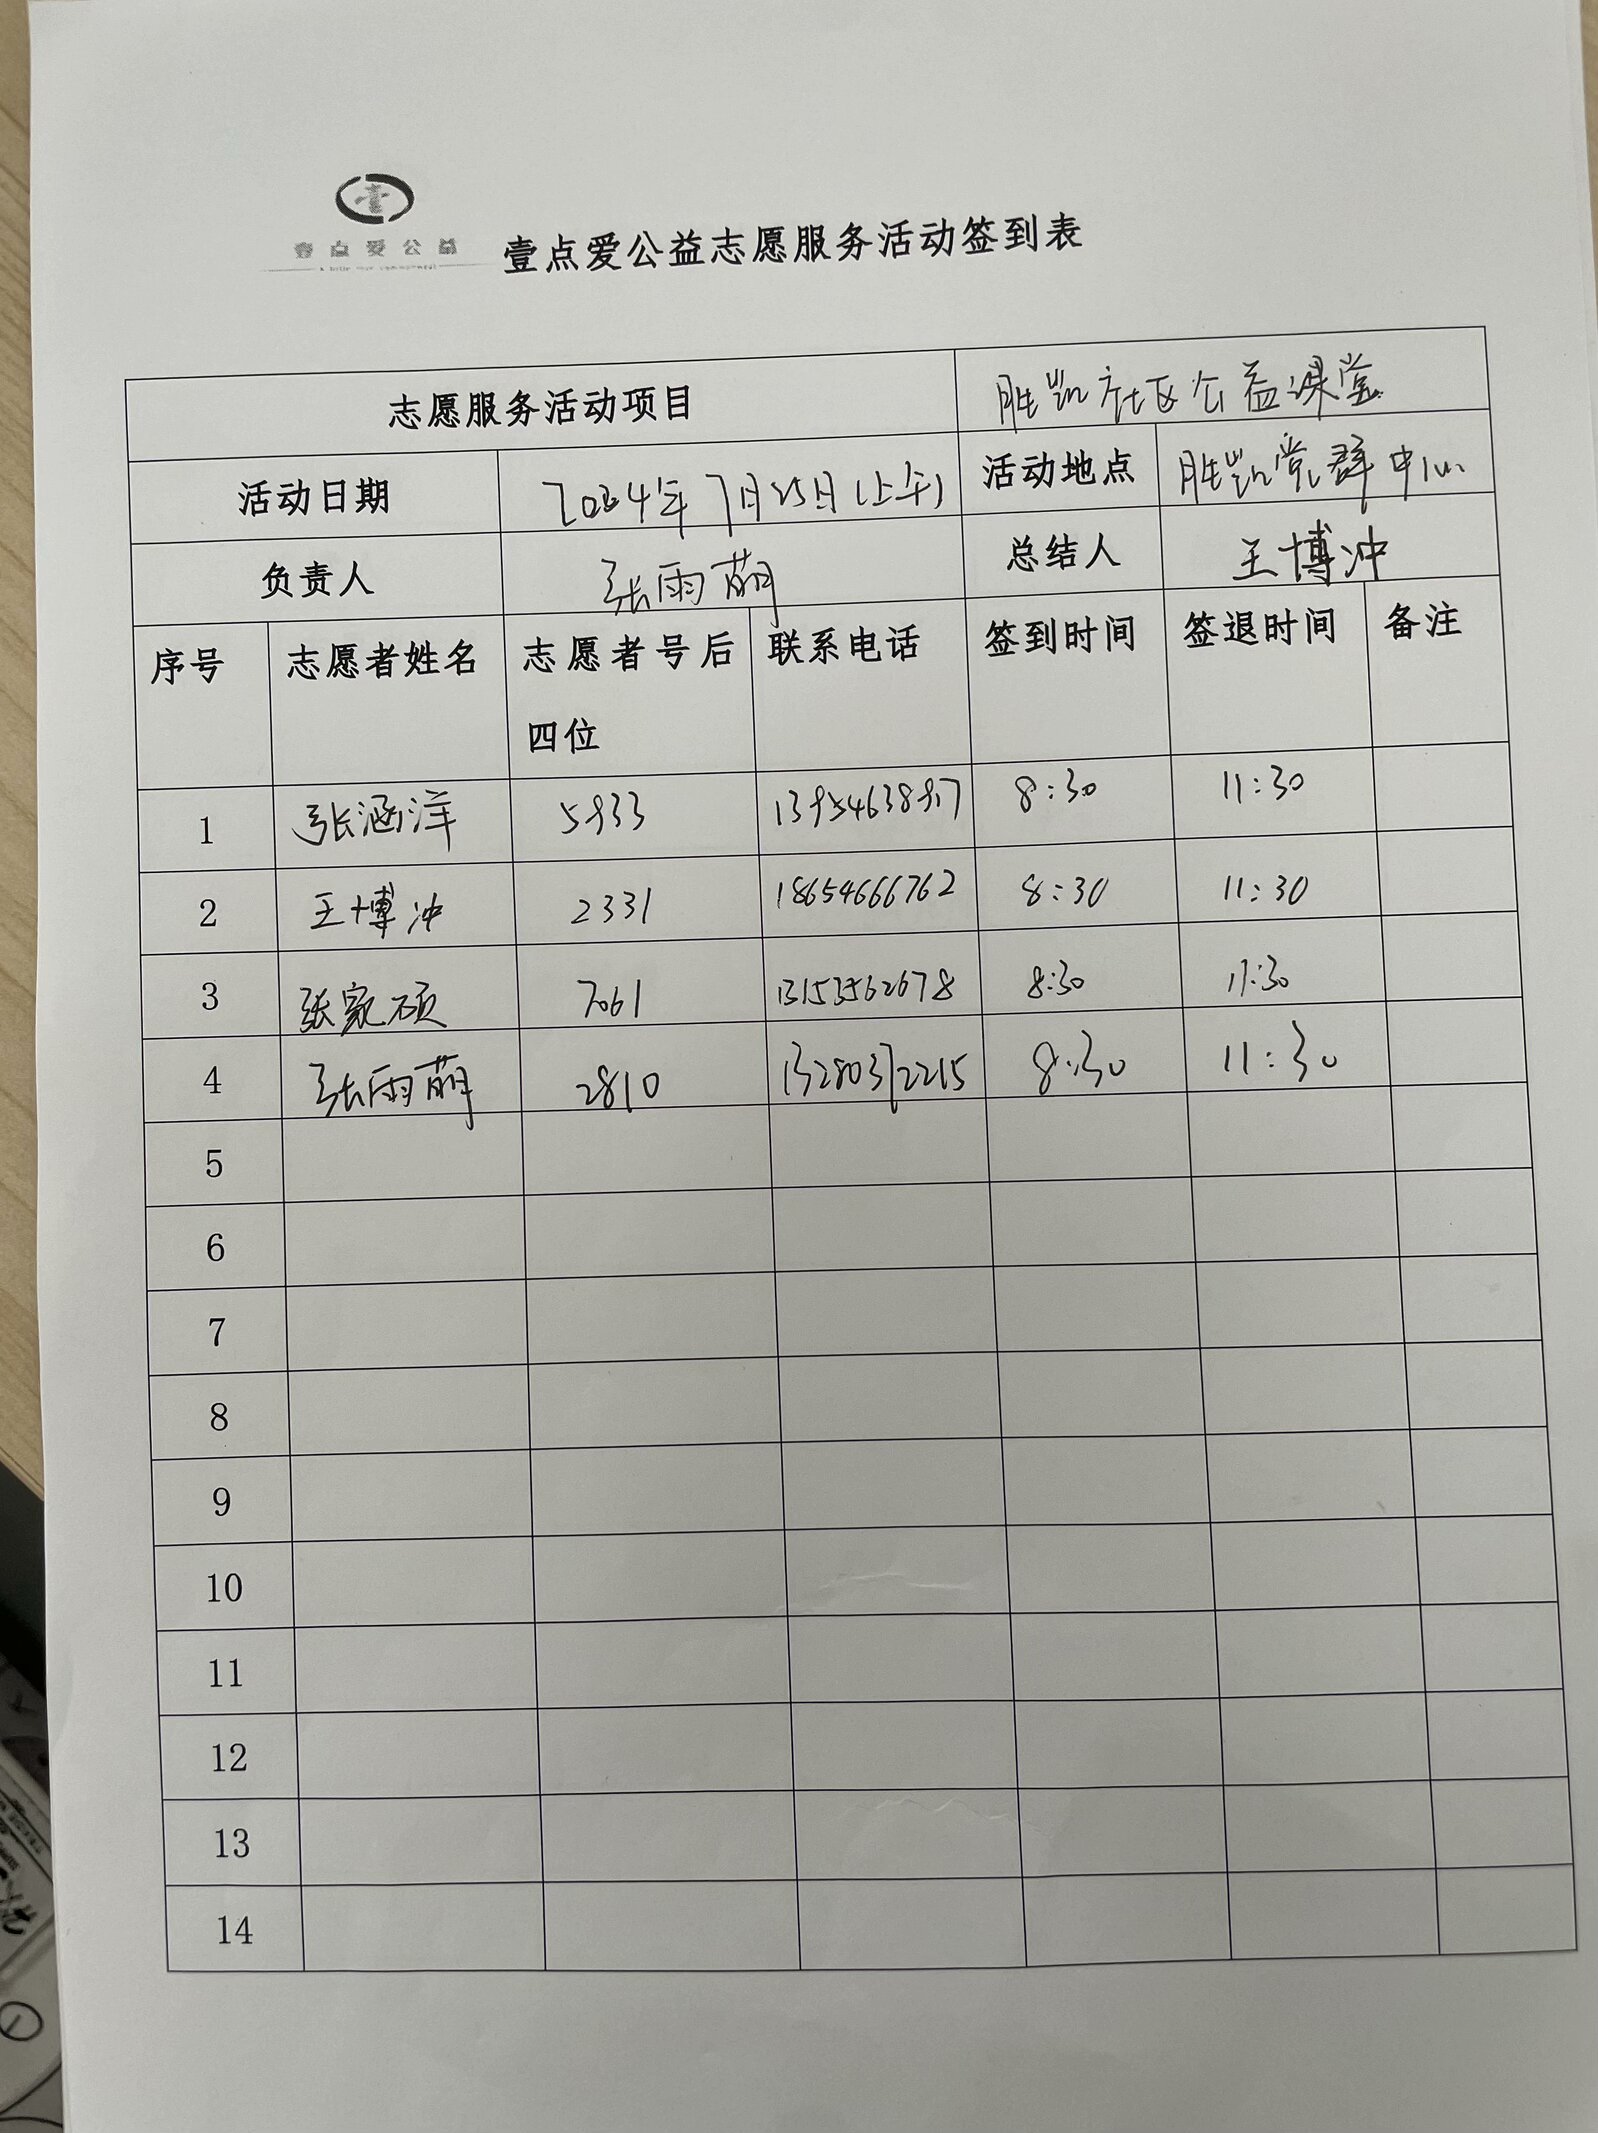 壹
壹点爱公益
壹点爱公益志愿服务活动签到表
志愿服务活动项目 胜凯社区公益课堂
活动日期 2024年7月25日(上午) 活动地点 胜凯党群中心
负责人 张雨萌 总结人 王博冲
序号 志愿者姓名 志愿者号后 联系电话 签到时间 签退时间 备注
四位
1 张涵洋 5933 8:30 11:30
2 王博冲 2331 18654666762 8:30 11:30
3 张家硕 7061 13153562678 8:30 11:30
4 张雨萌 2810 13280372215 8:30 11:30
5
6
7
8
9
10
11
12
13
14